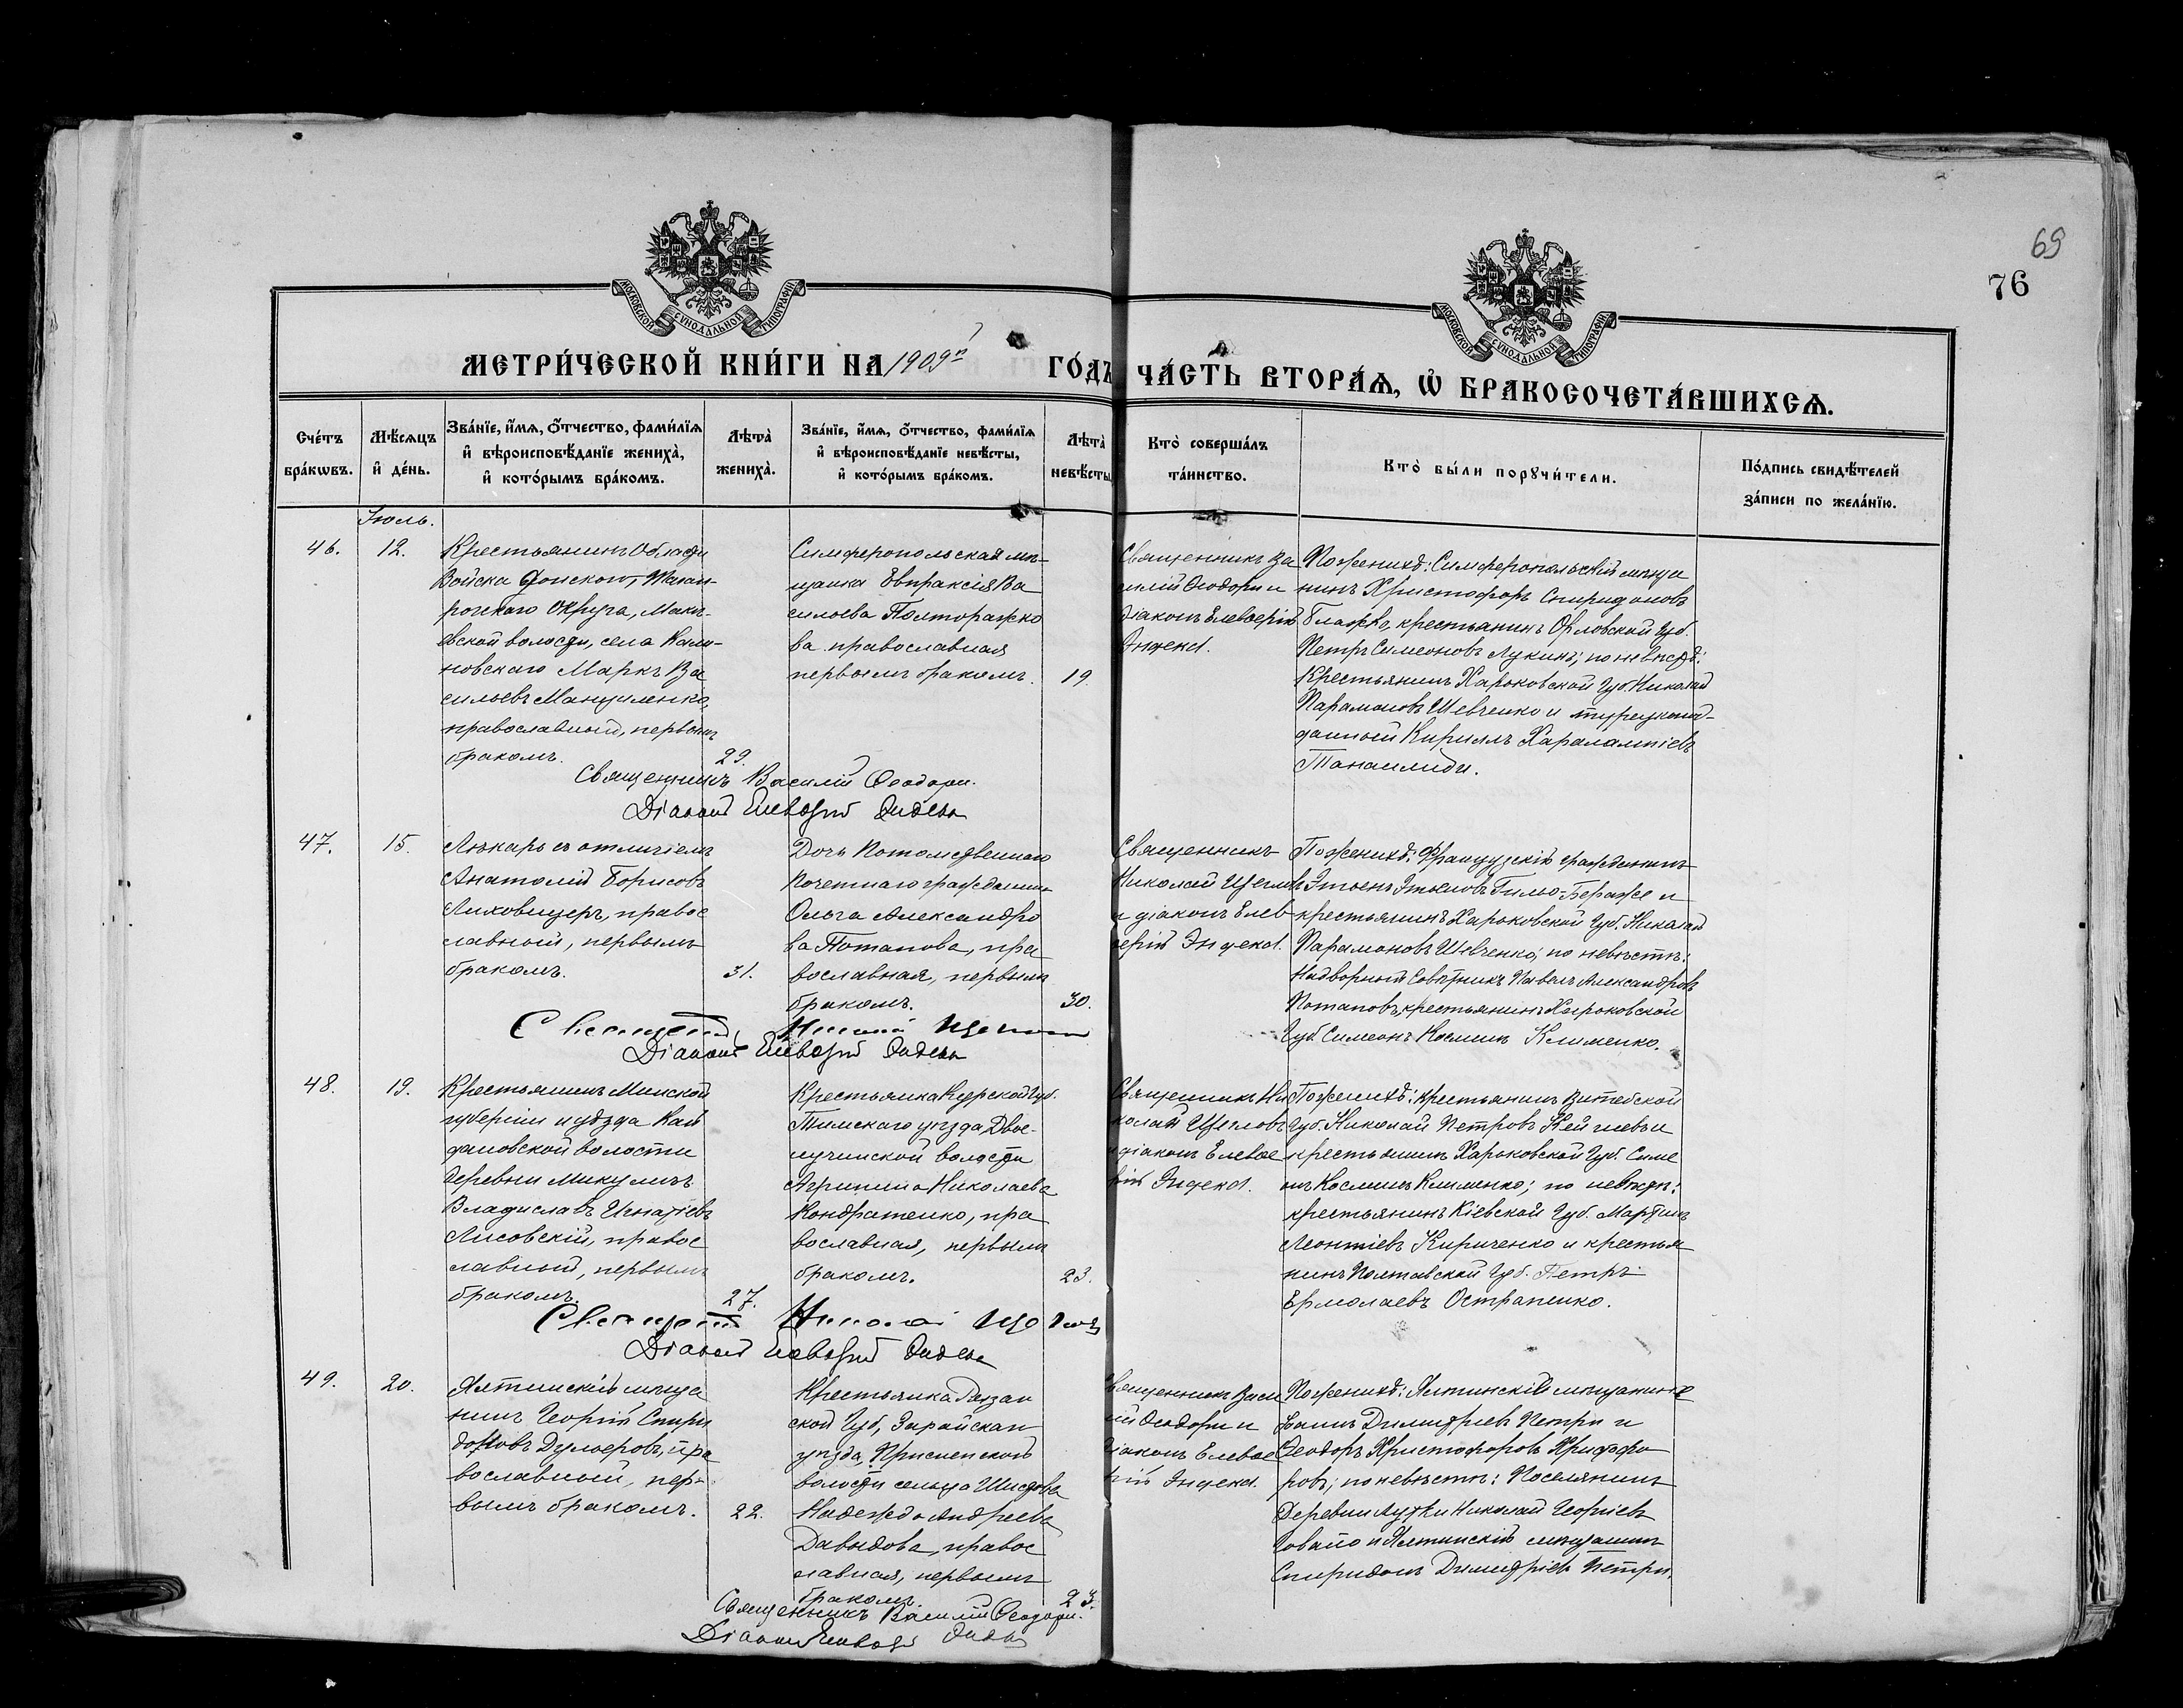 69
76
МОСКОВСКОЙ СѴНОДАЛЬНОЙ ТИПОГРАФІИ
МОСКОВСКОЙ СѴНОДАЛЬНОЙ ТИПОГРАФІИ
МЕТРИ́ЧЕСКОЙ КНИ́ГИ НА 1909й ГО́ДЪ ЧА́СТЬ ВТОРА́Ѧ, Ѡ҆ БРАКОСОЧЕТА́ВШИХСѦ.
Сче́тъ бра́кѡвъ.
Мѣ́сѧцъ и҆ де́нь.
Зва́нїе, и҆́мѧ, ѻ҆́тчество, фами́лїѧ
и҆ вѣроисповѣ́данїе жениха̀,
и҆ кото́рымъ бра́комъ.
Лѣта̀ жениха̀.
Зва́нїе, и҆́мѧ, ѻ҆́тчество, фами́лїѧ
и҆ вѣроисповѣ́данїе невѣ́сты,
и҆ кото́рымъ бра́комъ.
Лѣта̀ невѣ́сты
Кто̀ соверша́лъ
та́инство.
Кто̀ бы́ли порꙋчи́тели.
По́дпись свидѣ́телей
за́писи по жела́нїю.
Іюль.
46.
12.
Крестьянинъ Области
Войска Донского, Таган-
рогскаго Округа, Макѣ-
евской волости, села Кали-
новскаго Маркъ Ва
сильевъ Мануиленко,
православный, первымъ
бракомъ.
29.
Симферопольская мѣ-
щанка Евпраксія Ва
сильева Полторажко
ва православная
первымъ бракомъ.
19.
Священникъ Ва
силій Ѳеодори и
діаконъ Елевѳерій
Эндека.
По женихѣ: Симферопольскій мѣща
нинъ Христофоръ Спиридоновъ
Блажко, крестьянинъ Орловской Губ.
Петръ Симеоновъ Лукинъ; по невѣстѣ:
Крестьянинъ Харьковской Губ. Николай
Парамоновъ Шевченко и турецкопод-
данный Кириллъ Харалампіевъ
Танаилиди.
Священникъ Василій Ѳеодори.
Діаконъ Елевѳерій Эндека
47.
15.
Лѣкарь съ отличіемъ
Анатолій Борисовъ
Лиховицеръ, правос
лавный, первымъ
бракомъ.
31.
Дочь Потомственнаго
Почетнаго гражданина
Ольга Александро
ва Потапова, пра
вославная, первымъ
бракомъ.
30.
Священникъ
Николай Щегловъ
и діаконъ Елев
ѳерій Эндека.
По женихѣ: Французскій гражданинъ
Этьенъ Этьеновъ Гильо-Бераже и
крестьянинъ Харьковской Губ. Николай
Парамоновъ Шевченко; по невѣстѣ:
Надворный Совѣтникъ Павелъ Александровъ
Потаповъ, крестьянинъ Харьковской
Губ. Симеонъ Косминъ Клименко.
Священникъ Николай Щегловъ
Діаконъ Елевѳерій Эндека
48.
19.
Крестьянинъ Минской
губерніи и уѣзда Кай
дановской волости
деревни Микуличъ
Владиславъ Игнатіевъ
Лисовскій, правос
лавный, первымъ
бракомъ.
27.
Крестьянка Курской Губ.
Тимскаго уѣзда Двое-
лучинской волости
Агрипина Николаева
Кондратенко, пра
вославная, первымъ
бракомъ.
23.
Священникъ Ни
колай Щегловъ
и діаконъ Елевѳе
рій Эндека.
По женихѣ: крестьянинъ Витебской
Губ. Николай Петровъ и
крестьянинъ Харьковской Губ. Симе
онъ Косминъ Клименко; по невѣстѣ:
крестьянинъ Кіевской Губ. Мартинъ
Леонтіевъ Кириченко и крестья
нинъ Полтавской Губ. Петръ
Ермолаевъ Остапенко.
Священникъ Николай Щегловъ
Діаконъ Елевѳерій Эндека
49.
20.
Ялтинскій мѣща
нинъ Георгій Спири
доновъ Дулгеровъ, пра
вославный, пер-
вымъ бракомъ.
22.
Крестьянка Рязан
ской Губ, Зарайскаго
уѣзда,
волости сельца
Надежда Андреева
Давыдова, правос
лавная, первымъ
бракомъ.
23.
Священникъ Васи
лій Ѳеодори и
діаконъ Елевѳе
рій Эндека.
По женихѣ: Ялтинскій мѣщанинъ
Іоаннъ Димитріевъ Петри и
Ѳеодоръ Христофоровъ Христофо
ровъ; по невѣстѣ: Поселянинъ
Деревни Аутки Николай Георгіевъ
и Ялтинскій мѣщанинъ
Спиридонъ Димитріевъ Петри.
Священникъ Василій Ѳеодори.
Діаконъ Елевѳерій Эндека